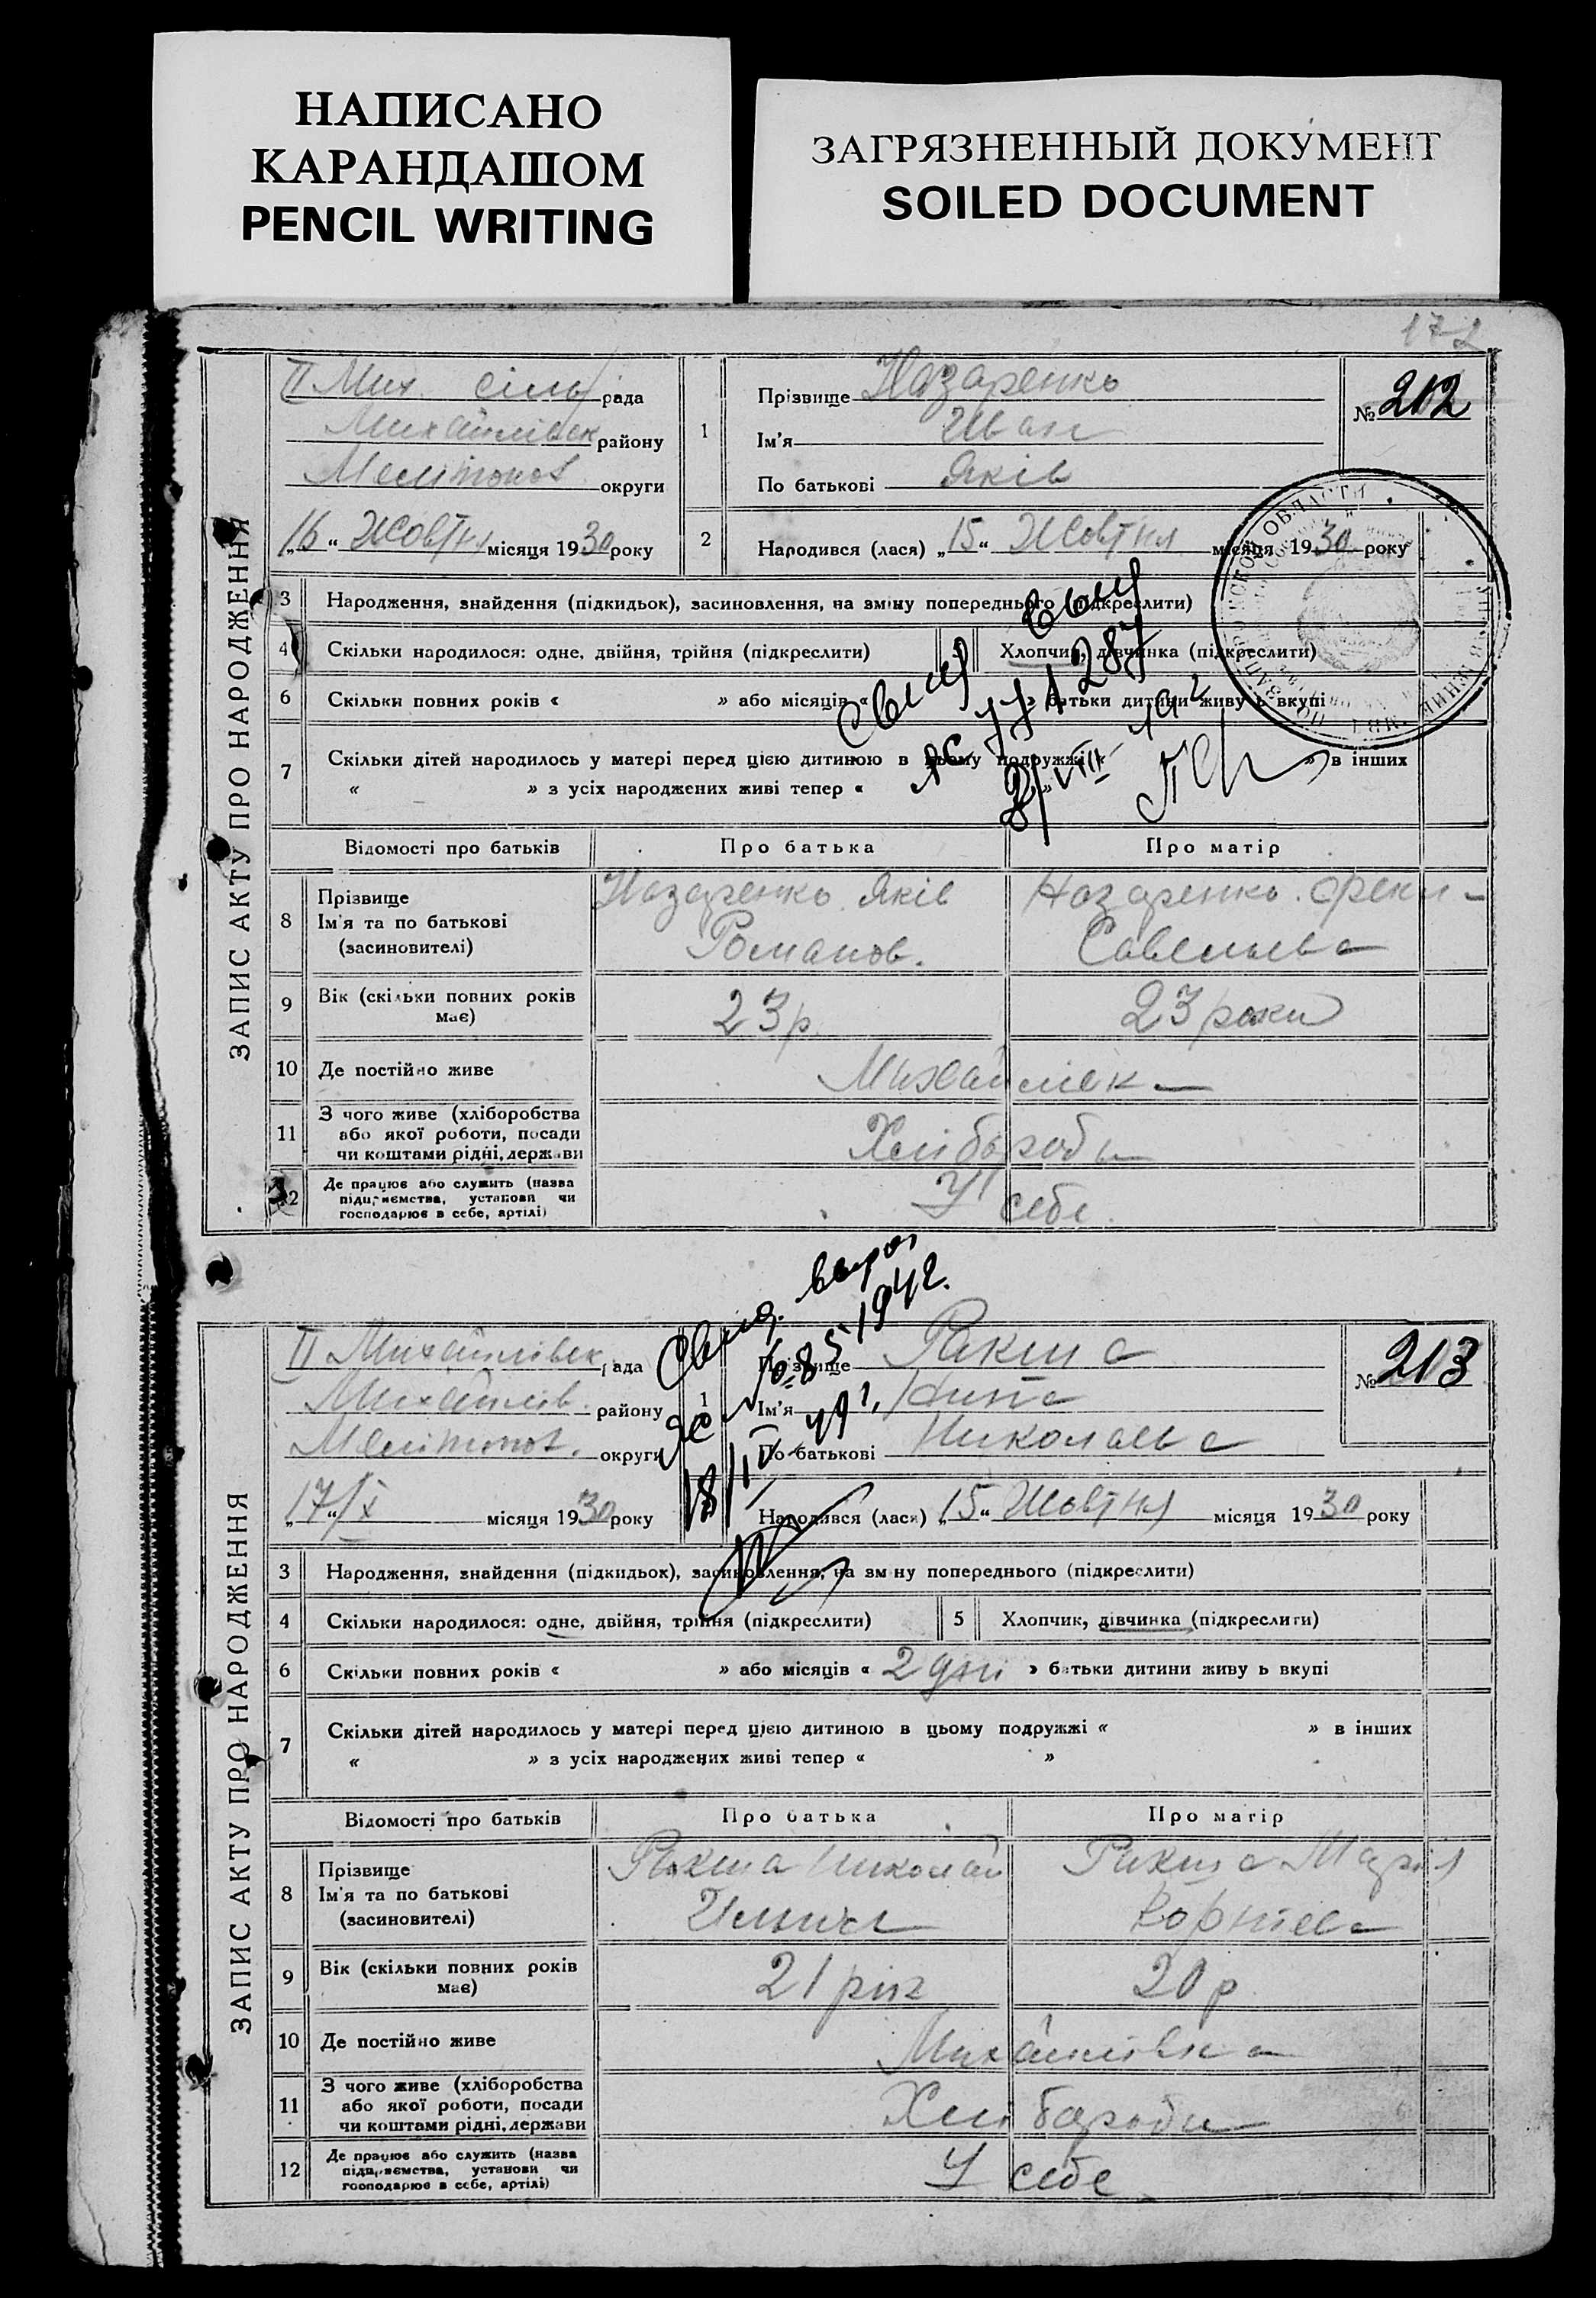 НАПИСАНО
КАРАНДАШОМ
PENCIL WRITING
ЗАГРЯЗНЕННЫЙ ДОКУМЕНТ
SOILED DOCUMENT
172
ЗАПИС АКТУ ПРО НАРОДЖЕННЯ
II Мих. сіль рада
Михайлівск району
Меліtопол округи
„16“ Жовтня місяця 1930 року
1
Прізвище Назаренко
Ім'я Иван
По батькові Яків
№ 202
2 Народився (лася) „15“ Жовтня місяця 1930 року
3 Народження, знайдення (підкидьок), засиновлення, на зміну попереднього (підкреслити)
4 Скільки народилося: одне, двійня, трійня (підкреслити) 5 Хлопчик, дівчинка (підкреслити)
6 Скільки повних років « » або місяців « » батьки дитини живуть вкупі
7 Скільки дітей народилось у матері перед цією дитиною в цьому подружжі « » в інших
« » з усіх народжених живі тепер « »
Відомості про батьків Про батька Про матір
8 Прізвище
Ім'я та по батькові
(засиновителі)
Назаренко Яків
Романов.
Назаренко
Савельева
9 Вік (скільки повних років має) 23 р. 23 роки
10 Де постійно живе
11 З чого живе (хліборобства
або якої роботи, посади
чи коштами рідні, держави
Хлібароби
12 Де працює або служить (назва
підприємства, установи чи
господарює в себе, артілі)
У себе
Свид. выдан
ЗАПИС АКТУ ПРО НАРОДЖЕННЯ
II Михайлівск рада
Михайлів. району
Меліtопол. округи
„17“/X місяця 1930 року
1
Прізвище Ракша
Ім'я Нина
По батькові Николаева
№ 213
Народився (лася) „15“ Жовтня місяця 1930 року
3 Народження, знайдення (підкидьох), засиновлення, на зміну попереднього (підкреслити)
4 Скільки народилося: одне, двійня, трійня (підкреслити) 5 Хлопчик, дівчинка (підкреслити)
6 Скільки повних років « » або місяців « 2 дні » батьки дитини живуть вкупі
7 Скільки дітей народилось у матері перед цією дитиною в цьому подружжі « » в інших
« » з усіх народжених живі тепер « »
Відомості про батьків Про батька Про матір
8 Прізвище
Ім'я та по батькові
(засиновителі)
Ракша Николай
Ракша Марія
Корніева
9 Вік (скільки повних років має) 21 рік 20 р
10 Де постійно живе Михайлівка
11 З чого живе (хліборобства
або якої роботи, посади
чи коштами рідні, держави
Хлібароби
12 Де працює або служить (назва
підприємства, установи чи
господарює в себе, артілі)
У себе